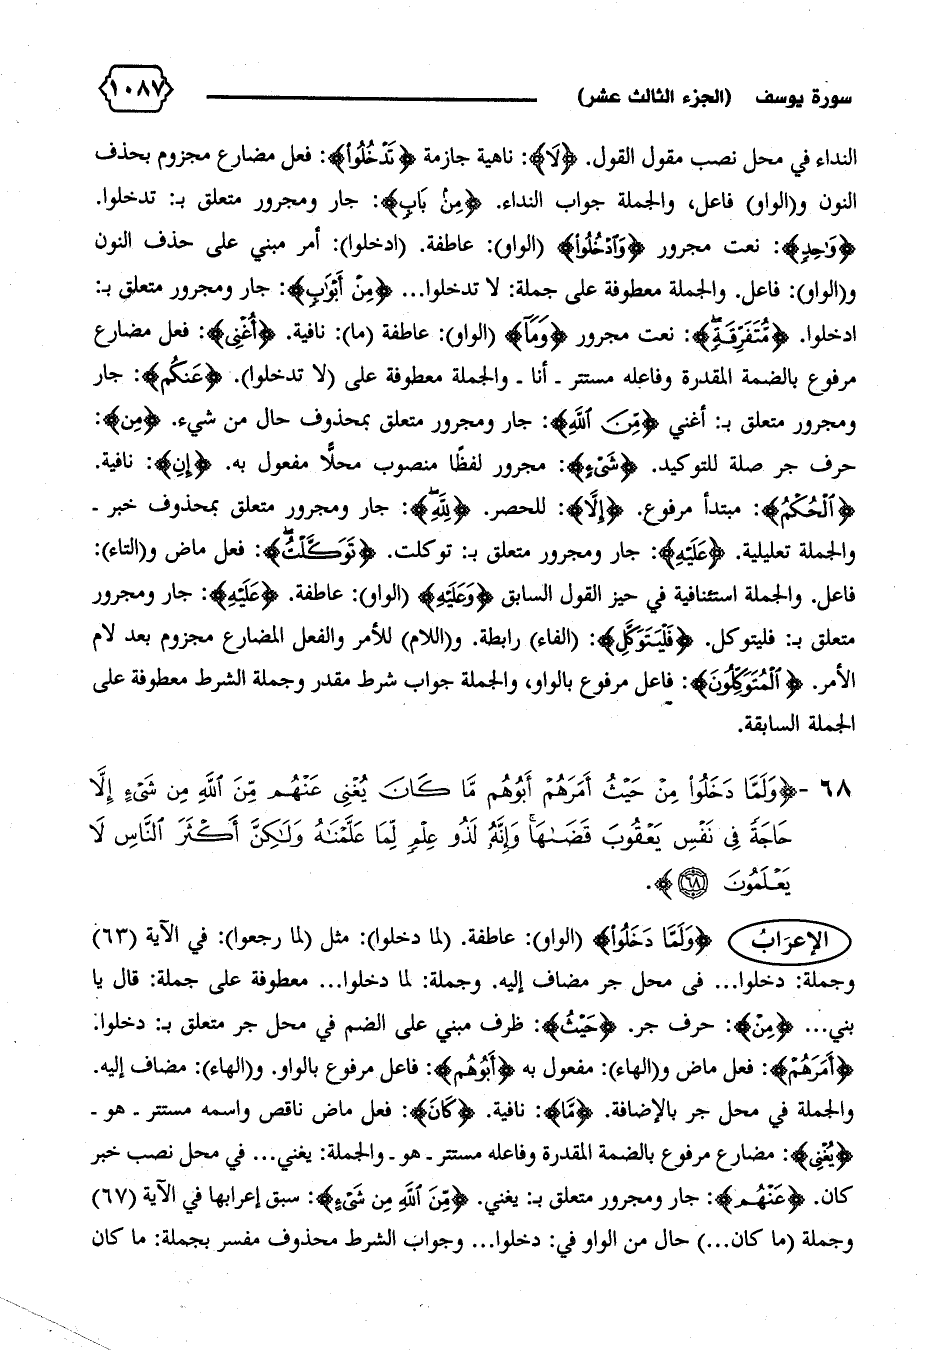 سورة يوسف (الجزء الثالث عشر) ١٠٨٧
النداء في محل نصب مقول القول. ﴿لَا﴾: ناهية جازمة ﴿تَدْخُلُوا۟﴾: فعل مضارع مجزوم بحذف
النون و(الواو) فاعل، والجملة جواب النداء. ﴿مِنۢ بَابٍ﴾: جار ومجرور متعلق بـ: تدخلوا.
﴿وَٰحِدٍ﴾: نعت مجرور ﴿وَٱدْخُلُوا۟﴾ (الواو): عاطفة. (ادخلوا): أمر مبني على حذف النون
و(الواو): فاعل. والجملة معطوفة على جملة: لا تدخلوا... ﴿مِنْ أَبْوَٰبٍ﴾: جار ومجرور متعلق بـ:
ادخلوا. ﴿مُّتَفَرِّقَةٍ ۖ﴾: نعت مجرور ﴿وَمَآ﴾ (الواو): عاطفة (ما): نافية. ﴿أُغْنِى﴾: فعل مضارع
مرفوع بالضمة المقدرة وفاعله مستتر ـ أنا ـ والجملة معطوفة على (لا تدخلوا). ﴿عَنكُم﴾: جار
ومجرور متعلق بـ: أغني ﴿مِّنَ ٱللَّهِ﴾: جار ومجرور متعلق بمحذوف حال من شيء. ﴿مِن﴾:
حرف جر صلة للتوكيد. ﴿شَىْءٍ﴾: مجرور لفظًا منصوب محلًّا مفعول به. ﴿إِنِ﴾: نافية.
﴿ٱلْحُكْمُ﴾: مبتدأ مرفوع. ﴿إِلَّا﴾: للحصر. ﴿لِلَّهِ ۖ﴾: جار ومجرور متعلق بمحذوف خبر ـ
والجملة تعليلية. ﴿عَلَيْهِ﴾: جار ومجرور متعلق بـ: توكلت. ﴿تَوَكَّلْتُ ۖ﴾: فعل ماض و(التاء):
فاعل. والجملة استئنافية في حيز القول السابق ﴿وَعَلَيْهِ﴾ (الواو): عاطفة. ﴿عَلَيْهِ﴾: جار ومجرور
متعلق بـ: فليتوكل. ﴿فَلْيَتَوَكَّلِ﴾: (الفاء) رابطة. و(اللام) للأمر والفعل المضارع مجزوم بعد لام
الأمر. ﴿ٱلْمُتَوَكِّلُونَ﴾: فاعل مرفوع بالواو، والجملة جواب شرط مقدر وجملة الشرط معطوفة على
الجملة السابقة.
٦٨ - ﴿وَلَمَّا دَخَلُوا۟ مِنْ حَيْثُ أَمَرَهُمْ أَبُوهُم مَّا كَانَ يُغْنِى عَنْهُم مِّنَ ٱللَّهِ مِن شَىْءٍ إِلَّا
حَاجَةً فِى نَفْسِ يَعْقُوبَ قَضَىٰهَا ۚ وَإِنَّهُۥ لَذُو عِلْمٍ لِّمَا عَلَّمْنَٰهُ وَلَٰكِنَّ أَكْثَرَ ٱلنَّاسِ لَا
يَعْلَمُونَ ٦٨﴾.
الإعرَابُ ﴿وَلَمَّا دَخَلُوا۟﴾ (الواو): عاطفة. (لما دخلوا): مثل (لما رجعوا): في الآية (٦٣)
وجملة: دخلوا... في محل جر مضاف إليه. وجملة: لما دخلوا... معطوفة على جملة: قال يا
بني... ﴿مِنْ﴾: حرف جر. ﴿حَيْثُ﴾: ظرف مبني على الضم في محل جر متعلق بـ: دخلوا.
﴿أَمَرَهُمْ﴾: فعل ماض و(الهاء): مفعول به ﴿أَبُوهُم﴾: فاعل مرفوع بالواو. و(الهاء): مضاف إليه.
والجملة في محل جر بالإضافة. ﴿مَّا﴾: نافية. ﴿كَانَ﴾: فعل ماض ناقص واسمه مستتر ـ هو ـ
﴿يُغْنِى﴾: مضارع مرفوع بالضمة المقدرة وفاعله مستتر ـ هو ـ والجملة: يغني... في محل نصب خبر
كان. ﴿عَنْهُم﴾: جار ومجرور متعلق بـ: يغني. ﴿مِّنَ ٱللَّهِ مِن شَىْءٍ﴾: سبق إعرابها في الآية (٦٧)
وجملة (ما كان...) حال من الواو في: دخلوا... وجواب الشرط محذوف مفسر بجملة: ما كان